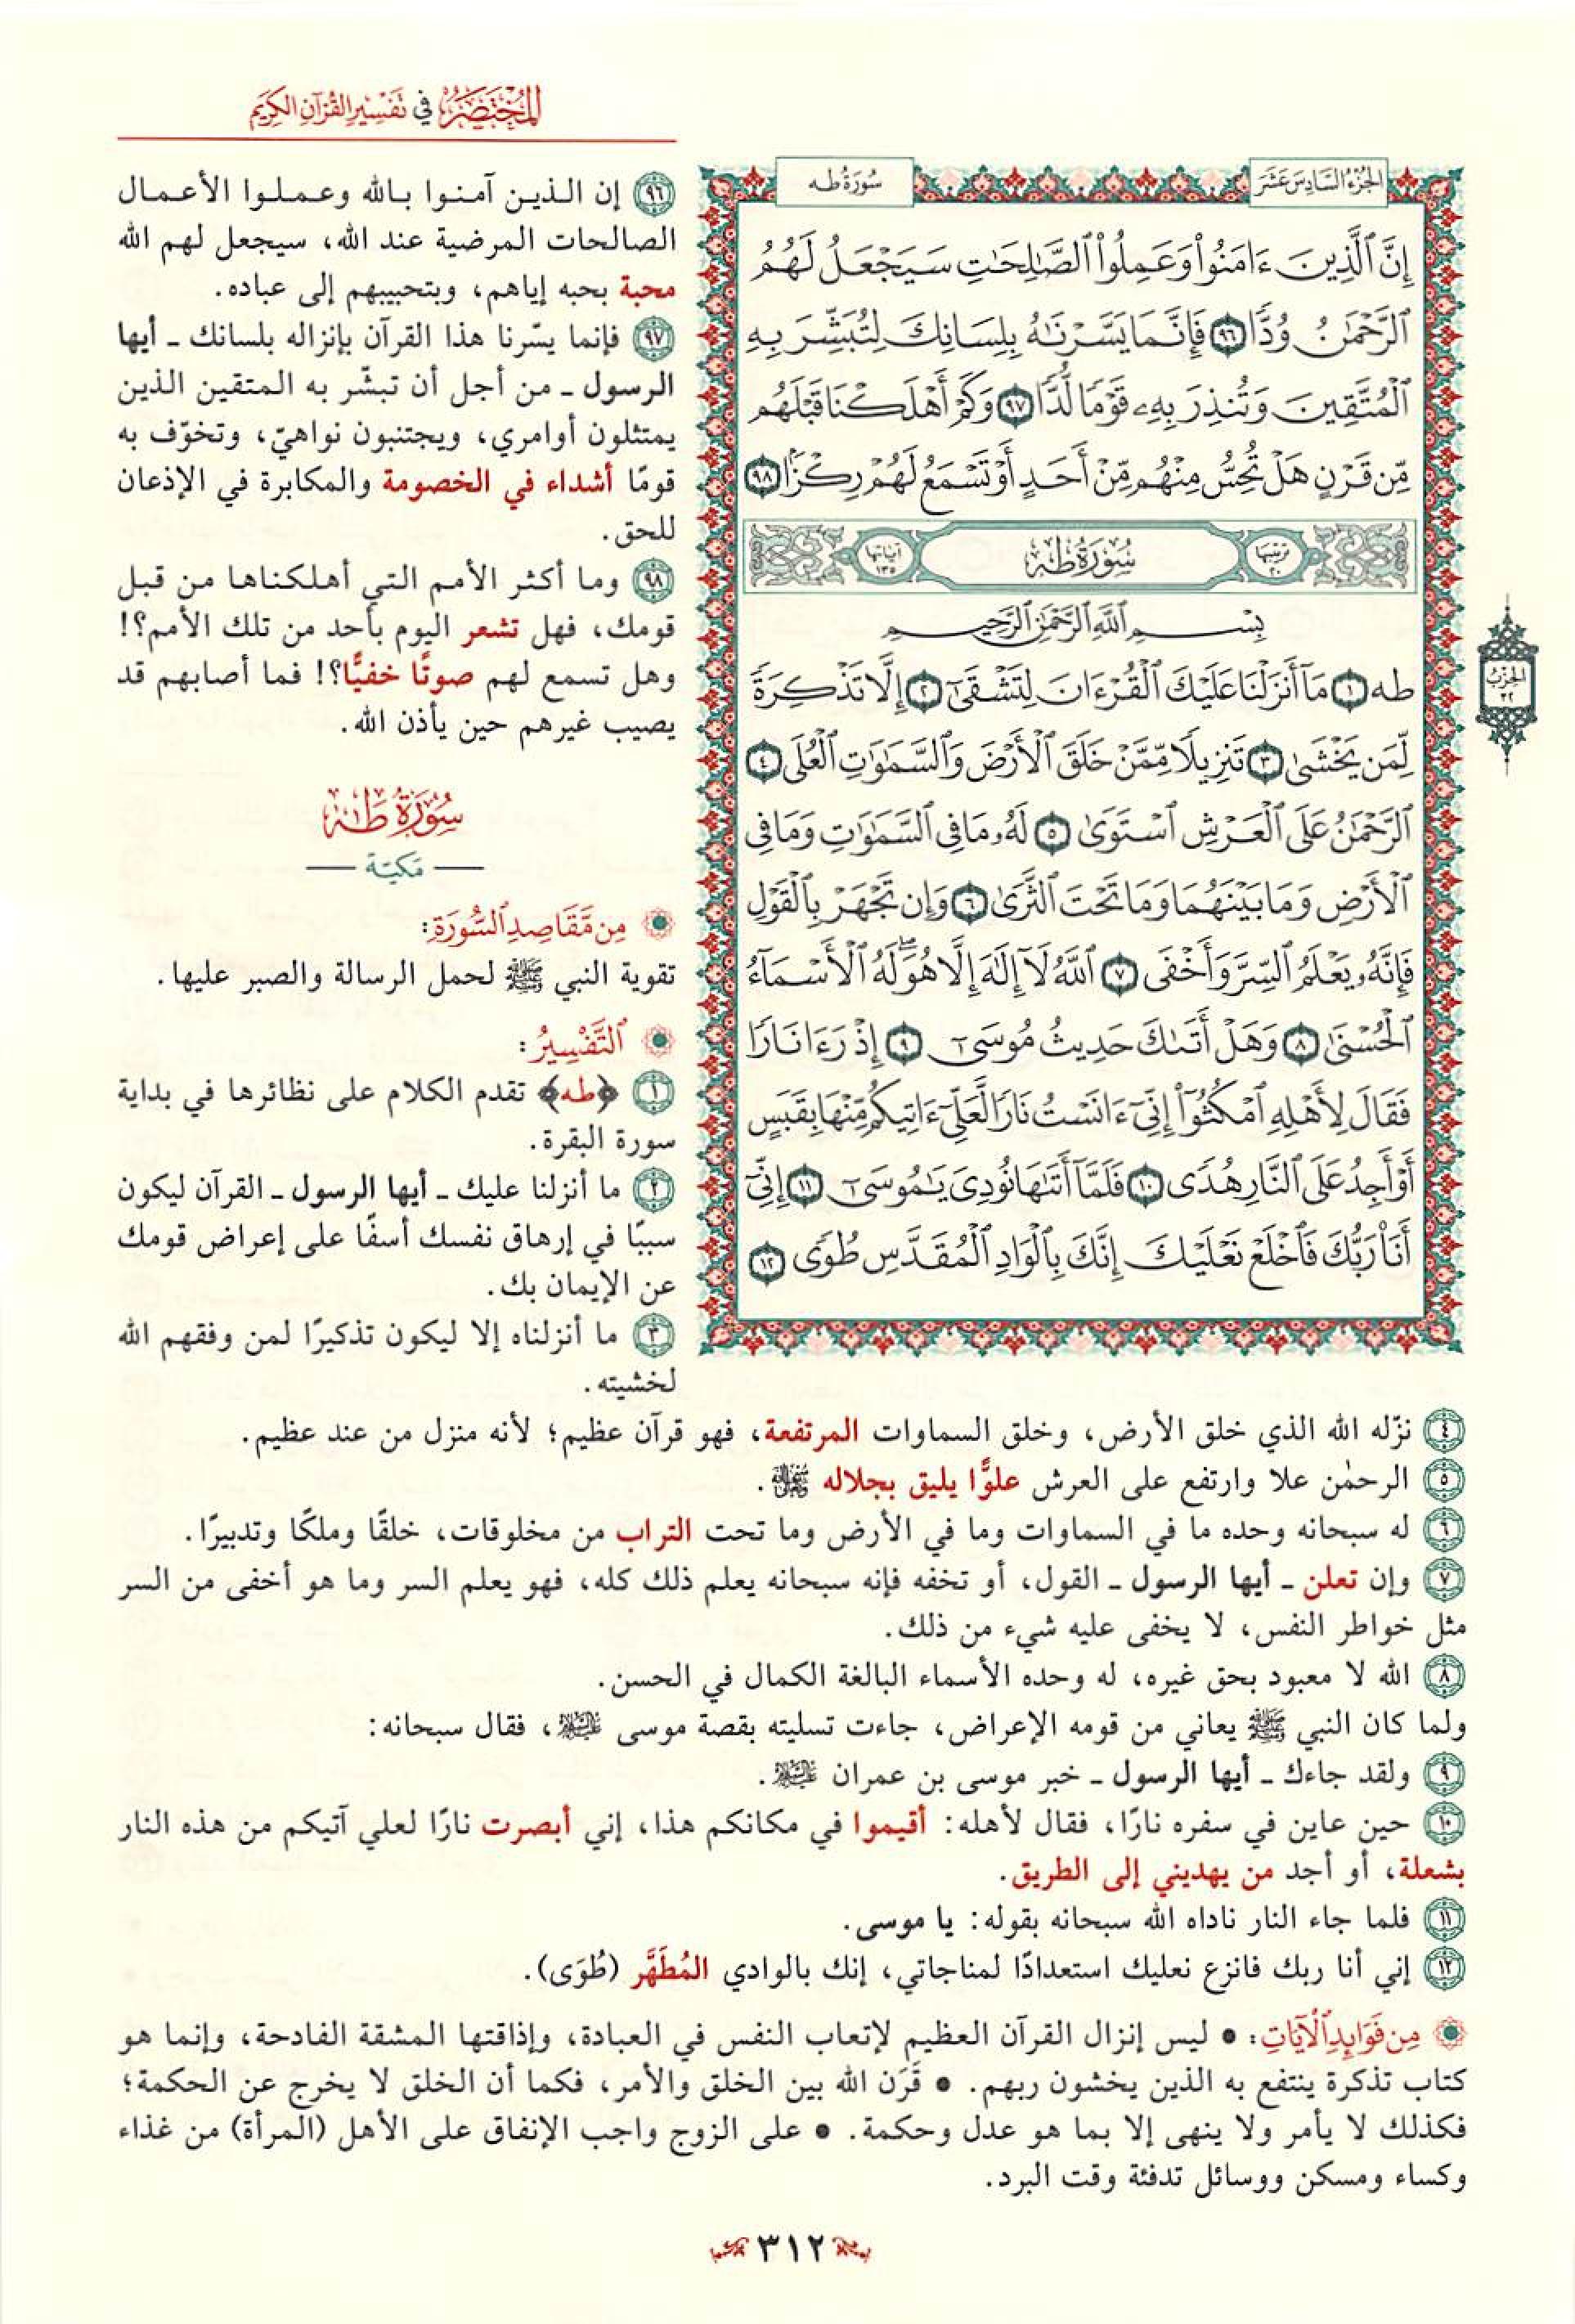 المختصر في تفسير القرآن الكريم
الجزء السادس عشر
سورة طه
إِنَّ ٱلَّذِينَ ءَامَنُوا۟ وَعَمِلُوا۟ ٱلصَّـٰلِحَـٰتِ سَيَجْعَلُ لَهُمُ
ٱلرَّحْمَـٰنُ وُدًّا ٩٦ فَإِنَّمَا يَسَّرْنَـٰهُ بِلِسَانِكَ لِتُبَشِّرَ بِهِ
ٱلْمُتَّقِينَ وَتُنذِرَ بِهِۦ قَوْمًا لُّدًّا ٩٧ وَكَمْ أَهْلَكْنَا قَبْلَهُم
مِّن قَرْنٍ هَلْ تُحِسُّ مِنْهُم مِّنْ أَحَدٍ أَوْ تَسْمَعُ لَهُمْ رِكْزًۢا ٩٨
ترتيبها ٢٠ سُورَةُ طه آياتها ١٣٥
بِسْمِ ٱللَّهِ ٱلرَّحْمَـٰنِ ٱلرَّحِيمِ
طه ١ مَآ أَنزَلْنَا عَلَيْكَ ٱلْقُرْءَانَ لِتَشْقَىٰٓ ٢ إِلَّا تَذْكِرَةً
لِّمَن يَخْشَىٰ ٣ تَنزِيلًا مِّمَّنْ خَلَقَ ٱلْأَرْضَ وَٱلسَّمَـٰوَٰتِ ٱلْعُلَى ٤
ٱلرَّحْمَـٰنُ عَلَى ٱلْعَرْشِ ٱسْتَوَىٰ ٥ لَهُۥ مَا فِى ٱلسَّمَـٰوَٰتِ وَمَا فِى
ٱلْأَرْضِ وَمَا بَيْنَهُمَا وَمَا تَحْتَ ٱلثَّرَىٰ ٦ وَإِن تَجْهَرْ بِٱلْقَوْلِ
فَإِنَّهُۥ يَعْلَمُ ٱلسِّرَّ وَأَخْفَى ٧ ٱللَّهُ لَآ إِلَـٰهَ إِلَّا هُوَ ۖ لَهُ ٱلْأَسْمَآءُ
ٱلْحُسْنَىٰ ٨ وَهَلْ أَتَىٰكَ حَدِيثُ مُوسَىٰٓ ٩ إِذْ رَءَا نَارًا
فَقَالَ لِأَهْلِهِ ٱمْكُثُوٓا۟ إِنِّىٓ ءَانَسْتُ نَارًا لَّعَلِّىٓ ءَاتِيكُم مِّنْهَا بِقَبَسٍ
أَوْ أَجِدُ عَلَى ٱلنَّارِ هُدًى ١٠ فَلَمَّآ أَتَىٰهَا نُودِىَ يَـٰمُوسَىٰٓ ١١ إِنِّىٓ
أَنَا۠ رَبُّكَ فَٱخْلَعْ نَعْلَيْكَ إِنَّكَ بِٱلْوَادِ ٱلْمُقَدَّسِ طُوًى ١٢
الحزب
٣٢
٩٦ إن الذين آمنوا بالله وعملوا الأعمال
الصالحات المرضية عند الله، سيجعل لهم الله
محبة بحبه إياهم، وبتحبيبهم إلى عباده.
٩٧ فإنما يسّرنا هذا القرآن بإنزاله بلسانك ـ أيها
الرسول ـ من أجل أن تبشّر به المتقين الذين
يمتثلون أوامري، ويجتنبون نواهيّ، وتخوّف به
قومًا أشداء في الخصومة والمكابرة في الإذعان
للحق.
٩٨ وما أكثر الأمم التي أهلكناها من قبل
قومك، فهل تشعر اليوم بأحد من تلك الأمم؟!
وهل تسمع لهم صوتًا خفيًّا؟! فما أصابهم قد
يصيب غيرهم حين يأذن الله.
سورة طه
مكيّة
من مقاصد السورة:
تقوية النبي ﷺ لحمل الرسالة والصبر عليها.
التفسير:
١ ﴿طه﴾ تقدم الكلام على نظائرها في بداية
سورة البقرة.
٢ ما أنزلنا عليك ـ أيها الرسول ـ القرآن ليكون
سببًا في إرهاق نفسك أسفًا على إعراض قومك
عن الإيمان بك.
٣ ما أنزلناه إلا ليكون تذكيرًا لمن وفقهم الله
لخشيته.
٤ نزّله الله الذي خلق الأرض، وخلق السماوات المرتفعة، فهو قرآن عظيم؛ لأنه منزل من عند عظيم.
٥ الرحمٰن علا وارتفع على العرش علوًّا يليق بجلاله سبحانه وتعالى.
٦ له سبحانه وحده ما في السماوات وما في الأرض وما تحت التراب من مخلوقات، خلقًا وملكًا وتدبيرًا.
٧ وإن تعلن ـ أيها الرسول ـ القول، أو تخفه فإنه سبحانه يعلم ذلك كله، فهو يعلم السر وما هو أخفى من السر
مثل خواطر النفس، لا يخفى عليه شيء من ذلك.
٨ الله لا معبود بحق غيره، له وحده الأسماء البالغة الكمال في الحسن.
ولما كان النبي ﷺ يعاني من قومه الإعراض، جاءت تسليته بقصة موسى عليه السلام، فقال سبحانه:
٩ ولقد جاءك ـ أيها الرسول ـ خبر موسى بن عمران عليه السلام.
١٠ حين عاين في سفره نارًا، فقال لأهله: أقيموا في مكانكم هذا، إني أبصرت نارًا لعلي آتيكم من هذه النار
بشعلة، أو أجد من يهديني إلى الطريق.
١١ فلما جاء النار ناداه الله سبحانه بقوله: يا موسى.
١٢ إني أنا ربك فانزع نعليك استعدادًا لمناجاتي، إنك بالوادي المُطَهَّر (طُوَى).
من فوائد الآيات: • ليس إنزال القرآن العظيم لإتعاب النفس في العبادة، وإذاقتها المشقة الفادحة، وإنما هو
كتاب تذكرة ينتفع به الذين يخشون ربهم. • قَرَن الله بين الخلق والأمر، فكما أن الخلق لا يخرج عن الحكمة؛
فكذلك لا يأمر ولا ينهى إلا بما هو عدل وحكمة. • على الزوج واجب الإنفاق على الأهل (المرأة) من غذاء
وكساء ومسكن ووسائل تدفئة وقت البرد.
٣١٢